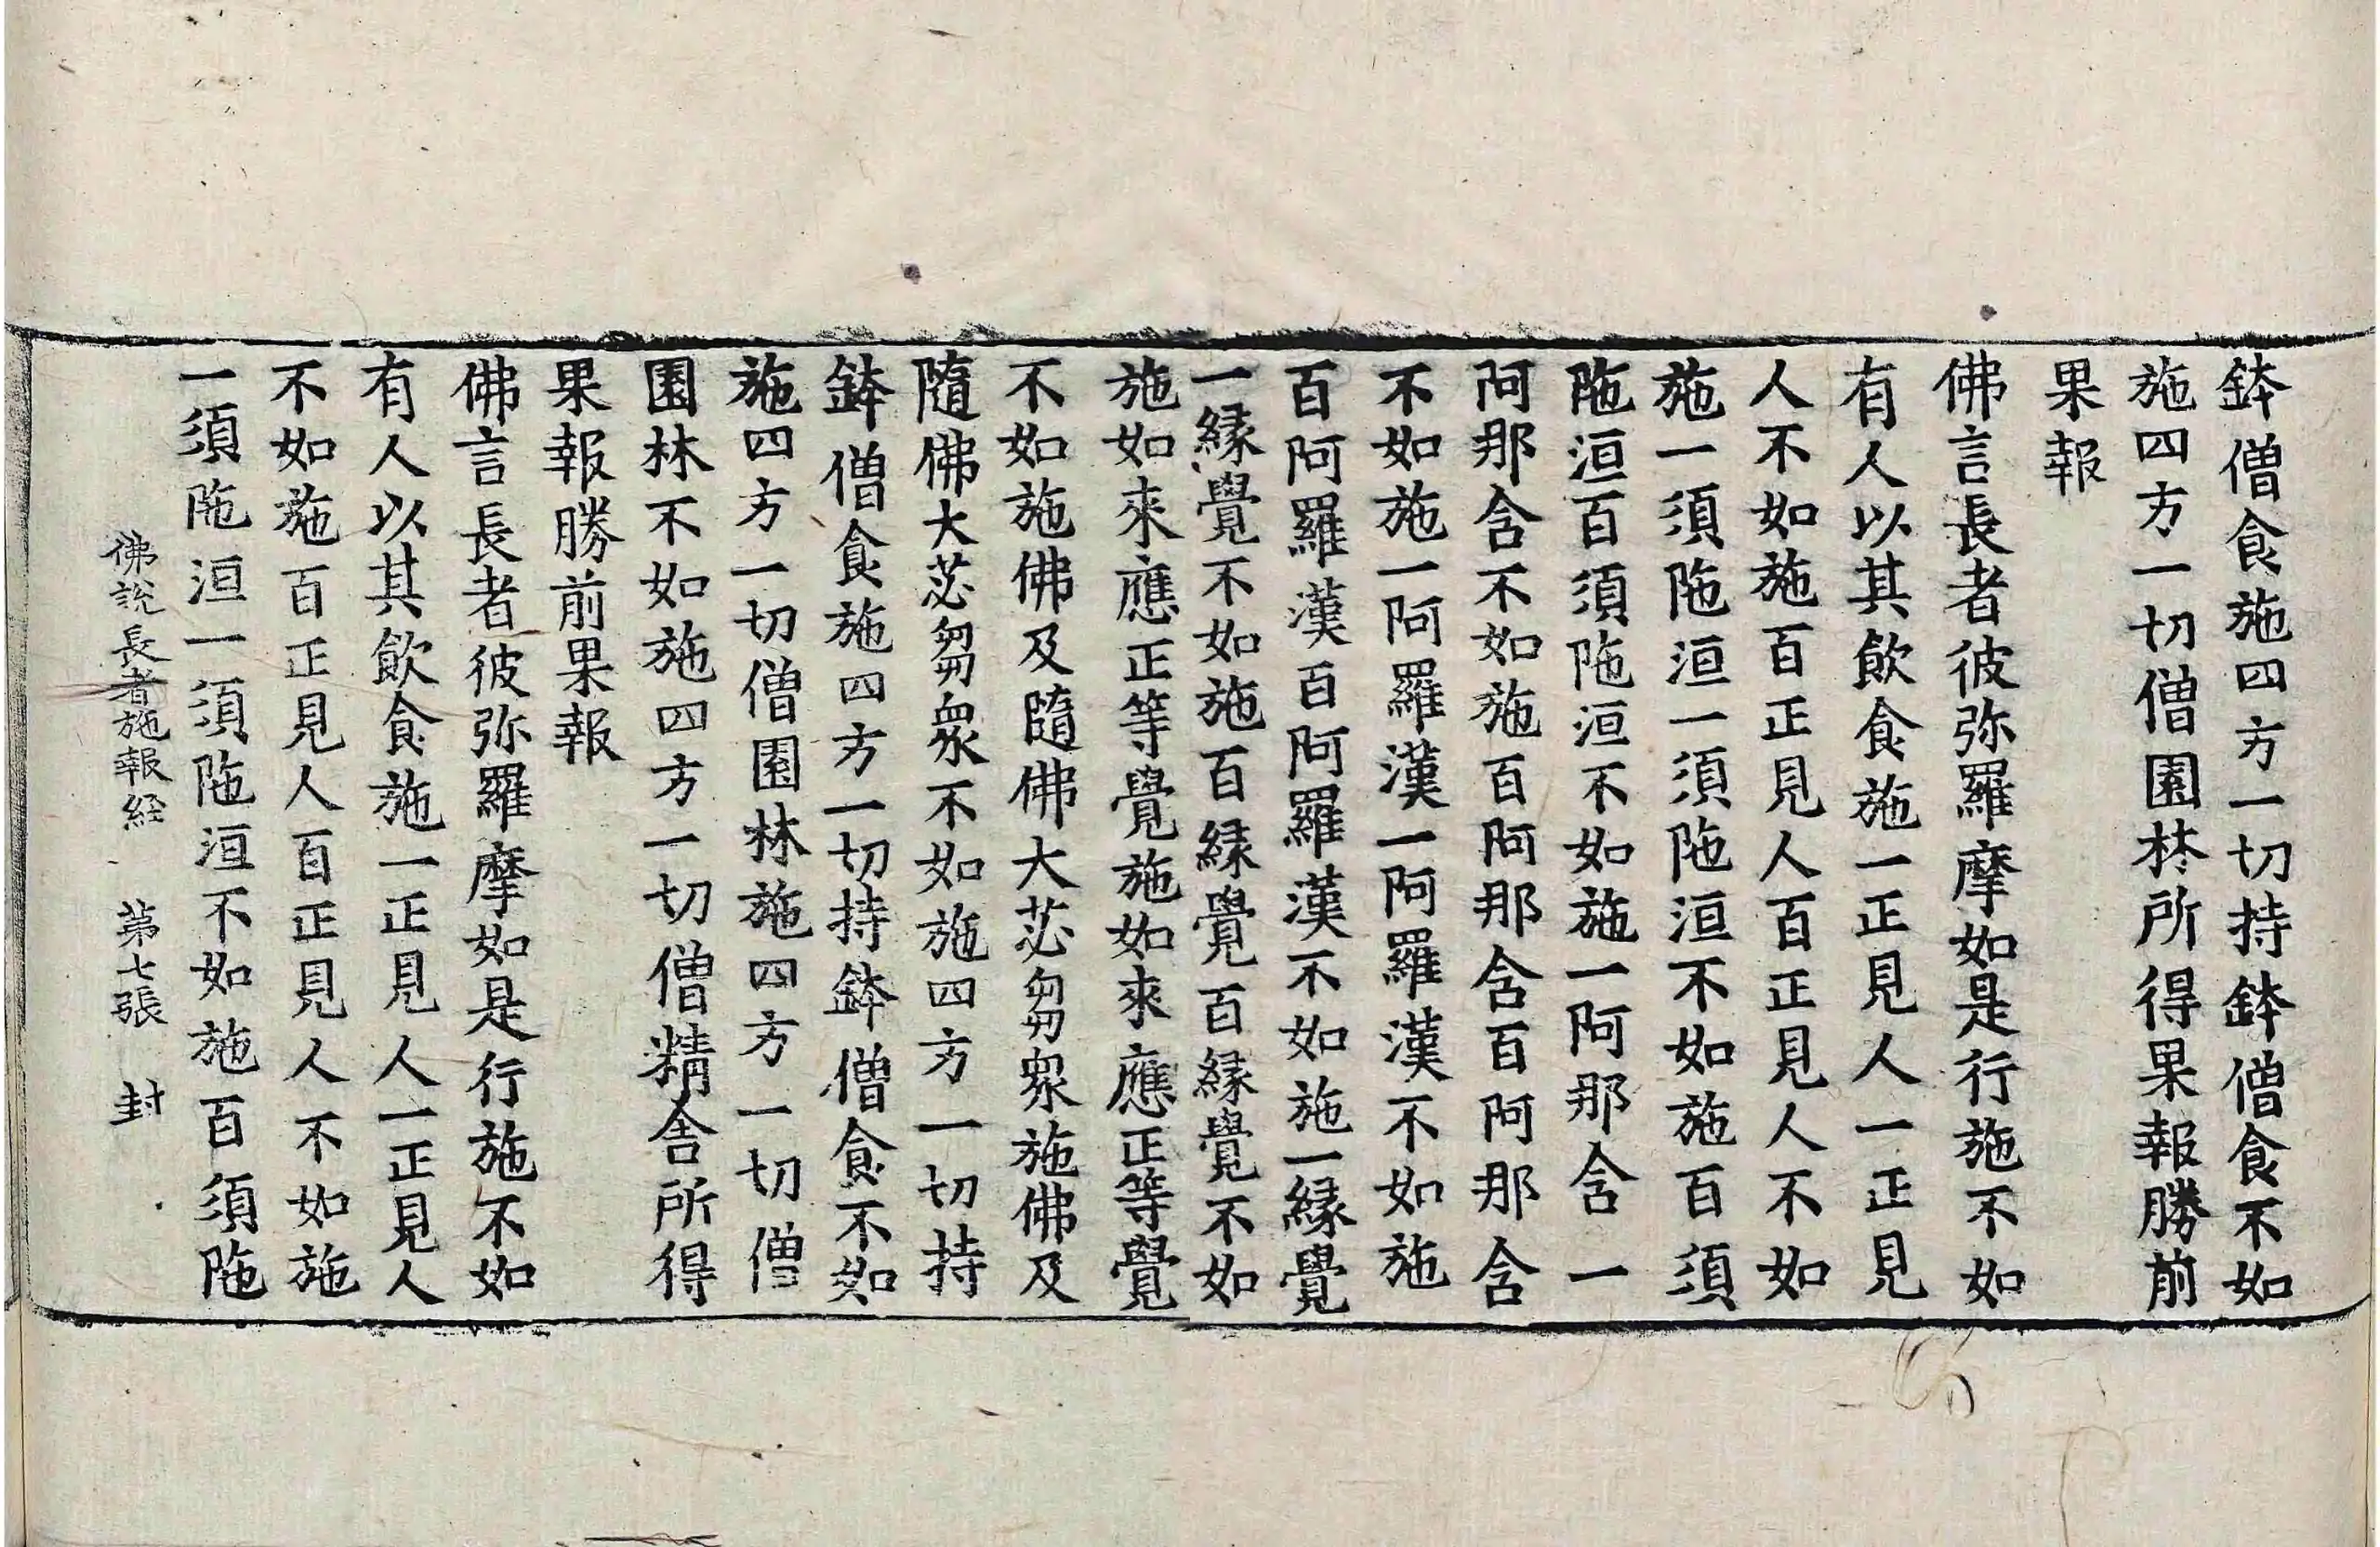 鉢僧食施四方一切持鉢僧食不如
施四方一切僧園林所得果報勝前
果報
佛言長者彼弥羅摩如是行施不如
有人以其飲食施一正見人一正見
人不如施百正見人百正見人不如
施一須陁洹一須陁洹不如施百須
陁洹百須陁洹不如施一阿那含一
阿那含不如施百阿那含百阿那含
不如施一阿羅漢一阿羅漢不如施
百阿羅漢百阿羅漢不如施一縁覺
一縁覺不如施百縁覺百縁覺不如
施如來應正等覺施如來應正等覺
不如施佛及隨佛大苾芻衆施佛及
隨佛大苾芻衆不如施四方一切持
鉢僧食施四方一切持鉢僧食不如
施四方一切僧園林施四方一切僧
園林不如施四方一切僧精舍所得
果報勝前果報
佛言長者彼弥羅摩如是行施不如
有人以其飲食施一正見人一正見人
不如施百正見人百正見人不如施
一須陁洹一須陁洹不如施百須陁
佛說長者施報經 第七張 封